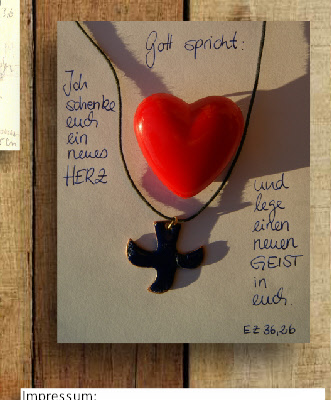 Gott spricht:
Ich
schenke
euch
ein
neues
HERZ
und
lege
einen
neuen
GEIST
in
euch.
EZ 36,26
Impressum: